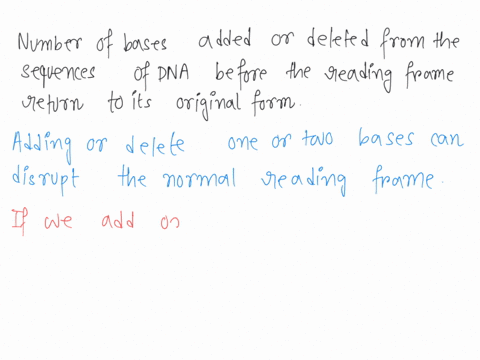 Number of bases added or deleted from the
sequences of DNA before the reading frame
return to its original form.
Adding or delete one or two bases can
disrupt the normal reading frame.
If we add or